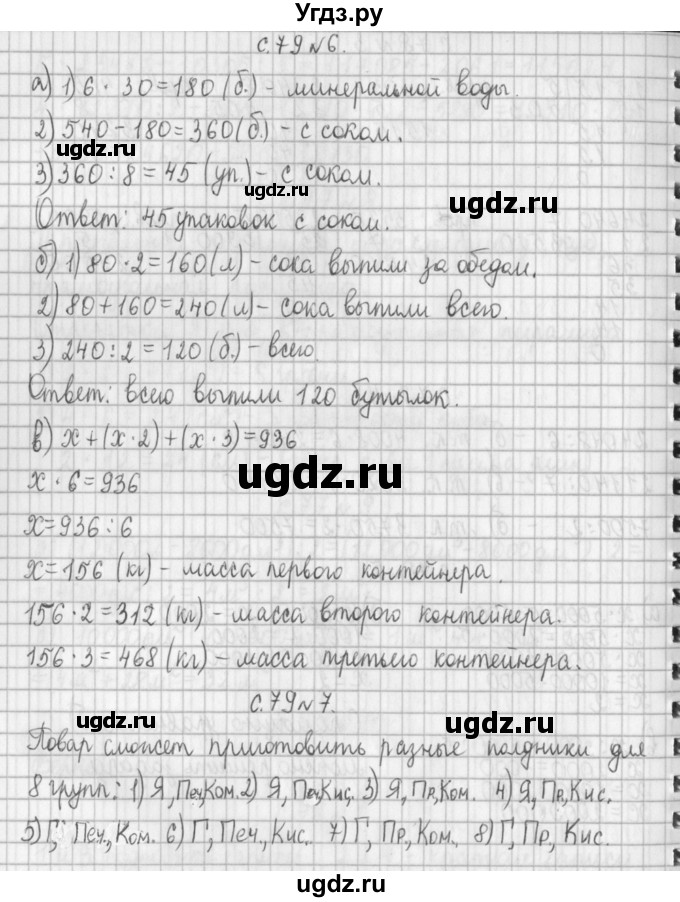 Угдз.ру
с.79 №6.
а) 1) 6 · 30 = 180 (б.) - минеральной воды.
2) 540 - 180 = 360 (б.) - с соком.
ugdz.ru
ugdz.ru
3) 360 : 8 = 45 (уп.) - с соком.
ugdz.ru
Ответ: 45 упаковок с соком.
б) 1) 80 · 2 = 160 (л) - сока выпили за обедом.
2) 80 + 160 = 240 (л) - сока выпили всего.
3) 240 : 2 = 120 (б.) - всего.
Ответ: всего выпили 120 бутылок.
в) x + (x · 2) + (x · 3) = 936
ugdz.ru
x · 6 = 936
x = 936 : 6
x = 156 (кг) - масса первого контейнера.
156 · 2 = 312 (кг) - масса второго контейнера.
156 · 3 = 468 (кг) - масса третьего контейнера.
с.79 №7.
ugdz.ru
ugdz.ru
Повар сможет приготовить разные полдники для
8 групп: 1) Я, Печ, Ком. 2) Я, Печ, Кис, 3) Я, Пр, Ком. 4) Я, Пр, Кис.
5) Г, Печ., Ком. 6) Г, Печ., Кис,. 7) Г, Пр, Ком., 8) Г, Пр, Кис.
ugdz.ru